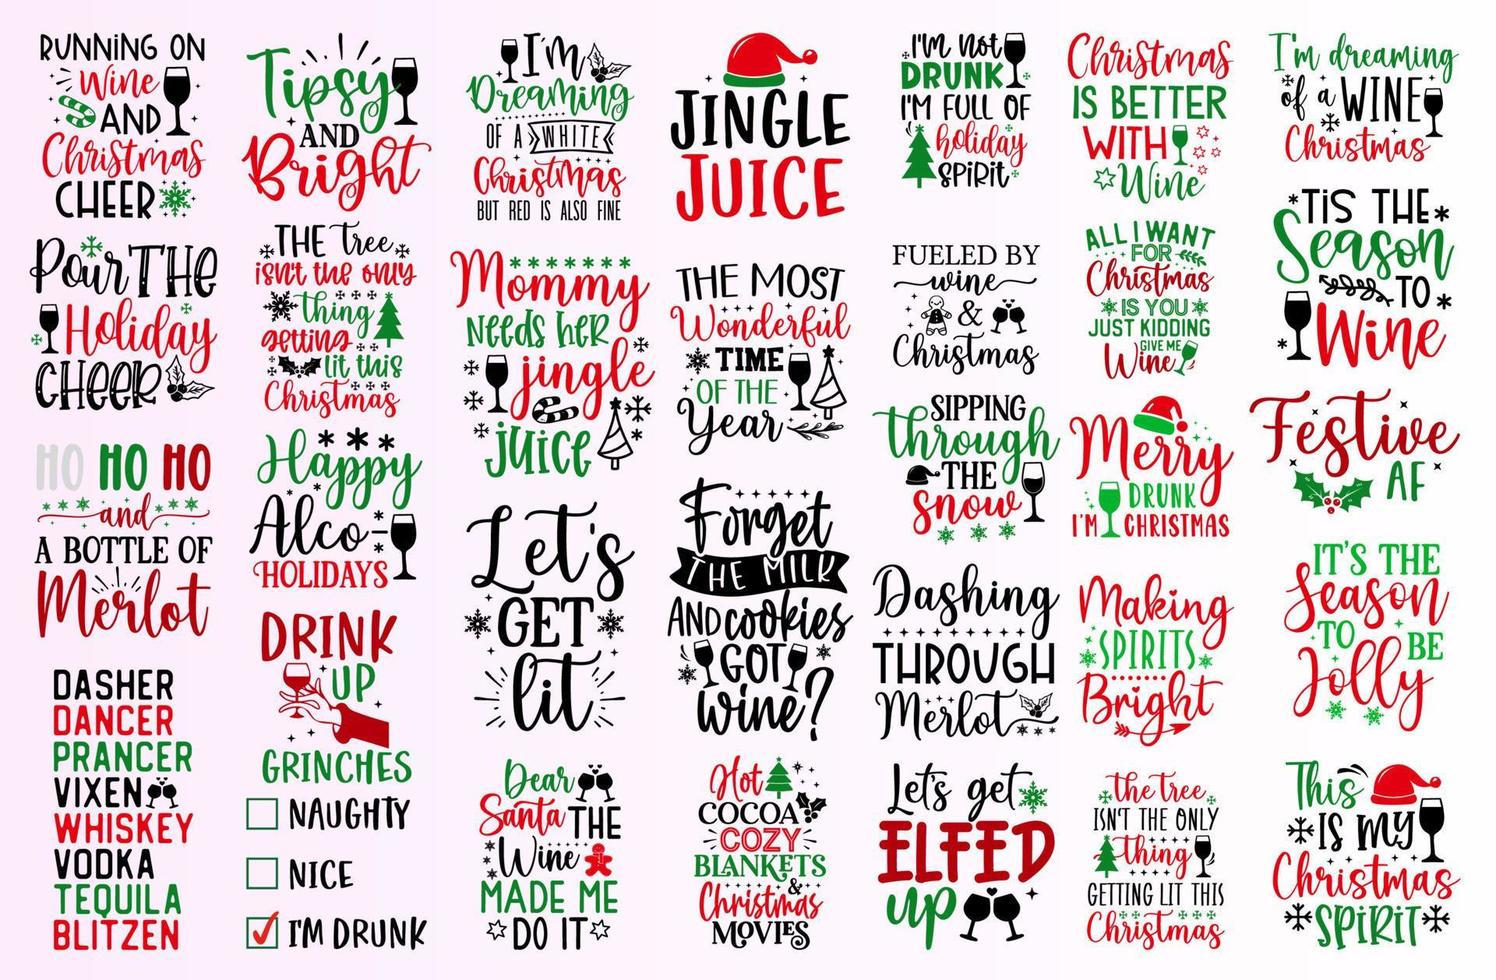 RUNNING ON
Wine
AND
Christmas
CHEER
Pour THE
Holiday
CHEER
HO HO HO
and
A BOTTLE OF
Merlot
DASHER
DANCER
PRANCER
VIXEN
WHISKEY
VODKA
TEQUILA
BLITZEN
Tipsy
AND
Bright
THE Tree
isn't the only
thing
getting
lit this
Christmas
Happy
Alco-
HOLIDAYS
DRINK
UP
GRINCHES
NAUGHTY
NICE
I'M DRUNK
I'm
Dreaming
OF A WHITE
Christmas
BUT RED IS ALSO FINE
Mommy
NEEDS HER
jingle
juice
Let's
GET
lit
Dear
Santa THE
Wine
MADE ME
DO IT
JINGLE
JUICE
THE MOST
Wonderful
TIME
OF THE
Year
Forget
THE MILK
AND cookies
GOT
wine?
Hot
COCOA
COZY
BLANKETS
&
Christmas
MOVIES
I'm not
DRUNK
I'M FULL OF
holiday
SPIRIT
FUELED BY
wine
&
Christmas
SIPPING
through
THE
Snow
Dashing
THROUGH
Merlot
Let's get
ELFED
up
Christmas
IS BETTER
WITH
Wine
ALL I WANT
FOR
Christmas
IS YOU
JUST KIDDING
GIVE ME
Wine
Merry
DRUNK
I'M CHRISTMAS
Making
SPIRITS
Bright
The Tree
ISN'T THE ONLY
thing
GETTING LIT THIS
Christmas
I'm dreaming
of a WINE
Christmas
TIS THE
Season
TO
Wine
Festive
AF
IT'S THE
Season
TO BE
Jolly
This
IS MY
Christmas
SPIRIT